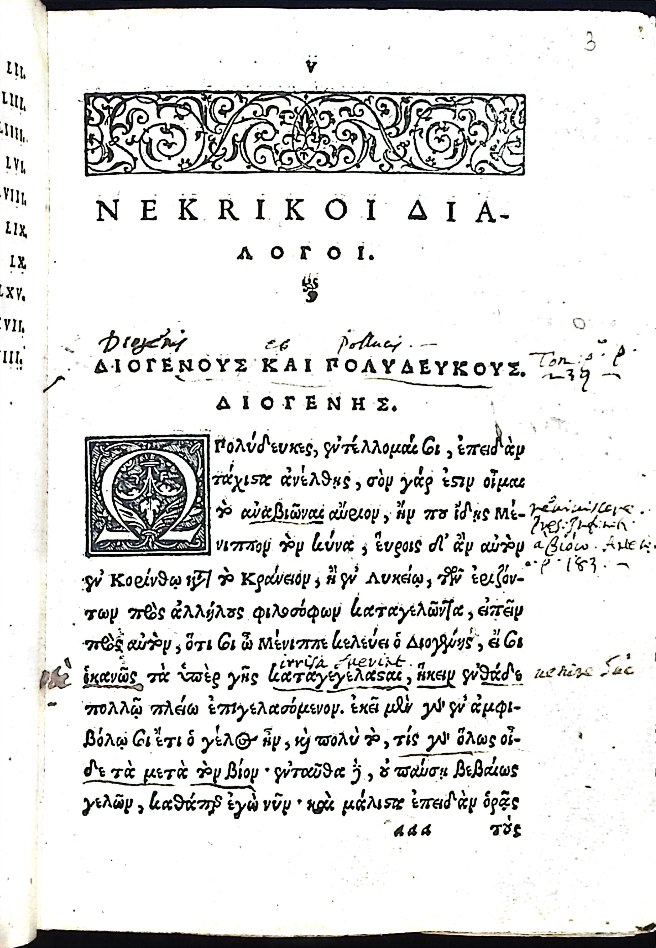 3
LII.
LIII.
LIIII.
LVI.
VIII.
LIX.
LX.
LXV.
VII.
IIII.
ΝΕΚRΙΚΟΙ ΔΙΑ-
ΛΟΓΟΙ.
et
ΔΙΟΓΕΝΟΥΣ ΚΑΙ ΠΟΛΥΔΕΥΚΟΥΣ.
ΔΙΟΓΕΝΗΣ.
Ω Πολύδευκες, ἐντέλλομαί σοι, ἐπειδὰν
τάχιστα ἀνέλθῃς, σὸν γάρ ἐστιν οἶμαι
τὸ ἀναβιῶναι αὔριον, ἤν που ἴδῃς Μέ-
νιππον τὸν κύνα, εὕροις δ' ἂν αὐτὸν
ἐν Κορίνθῳ κατὰ τὸ Κράνειον, ἢ ἐν Λυκείῳ, τῶν ἐριζόν-
των πρὸς ἀλλήλους φιλοσόφων καταγελῶντα, εἰπεῖν
πρὸς αὐτὸν, ὅτι σοι ὦ Μένιππε κελεύει ὁ Διογένης, εἴ σοι
ἱκανῶς τὰ ὑπὲρ γῆς καταγεγέλασαι, ἥκειν ἐνθάδε
πολλῷ πλείω ἐπιγελασόμενον. ἐκεῖ μὲν γὰρ ἐν ἀμφι-
βόλῳ σοι ἔτι ὁ γέλως ἦν, καὶ πολὺ τὸ, τίς γὰρ ὅλως οἶ-
δε τὰ μετὰ τὸν βίον· ἐνταῦθα δὲ, οὐ παύσῃ βεβαίως
γελῶν, καθάπερ ἐγὼ νῦν· καὶ μάλιστα ἐπειδὰν ὁρᾷς
aaa τοὺς